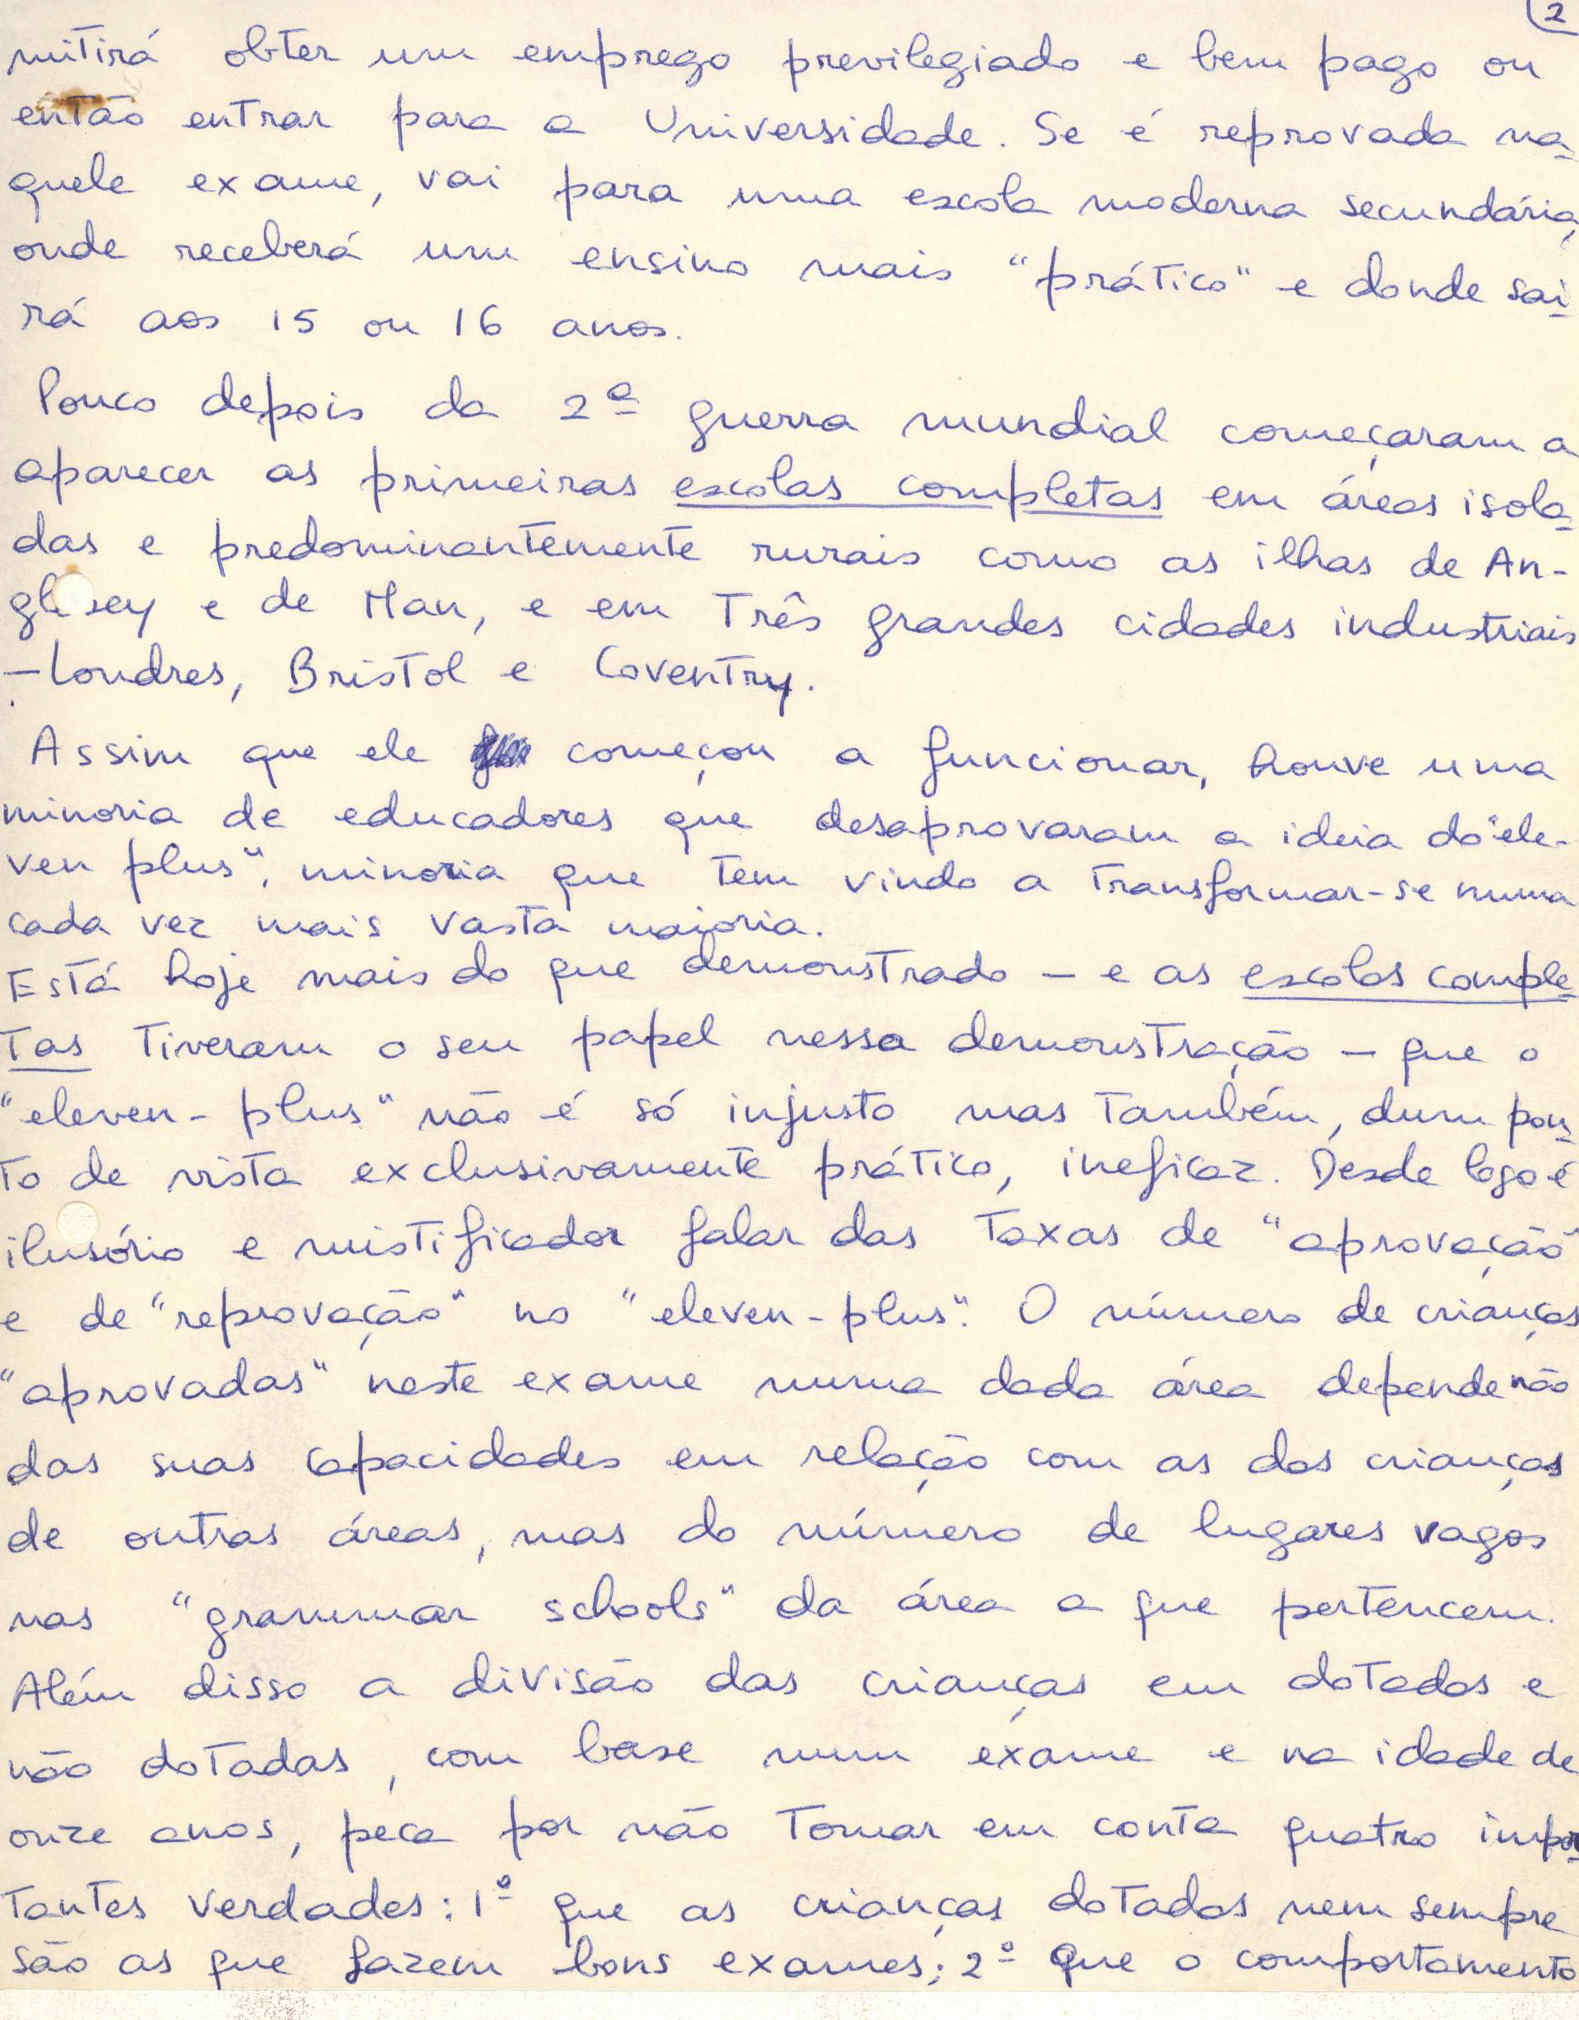 2
mitirá obter um emprego previlegiado e bem pago ou
então entrar para a Universidade. Se é reprovada na-
quele exame, vai para uma escola moderna secundária,
onde receberá um ensino mais "prático" e donde sai-
rá aos 15 ou 16 anos.
Pouco depois da 2ª guerra mundial começaram a
aparecer as primeiras escolas completas em áreas isola-
das e predominantemente rurais como as ilhas de An-
gl sey e de Man, e em Três grandes cidades industriais
- Londres, Bristol e Coventry.
Assim que ele começou a funcionar, houve uma
minoria de educadores que desaprovaram a ideia do "ele-
ven plus", minoria que tem vindo a transformar-se numa
cada vez mais vasta maioria.
Está hoje mais do que demonstrado - e as escolas comple-
tas tiveram o seu papel nessa demonstração - que o
"eleven-plus" não é só injusto mas também, dum pon-
to de vista exclusivamente prático, ineficaz. Desde logo é
ilusório e mistificador falar das taxas de "aprovação"
e de "reprovação" no "eleven-plus". O número de crianças
"aprovadas" neste exame numa dada área depende não
das suas capacidades em relação com as das crianças
de outras áreas, mas do número de lugares vagos
nas "grammar schools" da área a que pertencem.
Além disso a divisão das crianças em dotadas e
não dotadas, com base num exame e na idade de
onze anos, peca por não tomar em conta quatro impor-
tantes verdades: 1º que as crianças dotadas nem sempre
são as que fazem bons exames; 2º que o comportamento